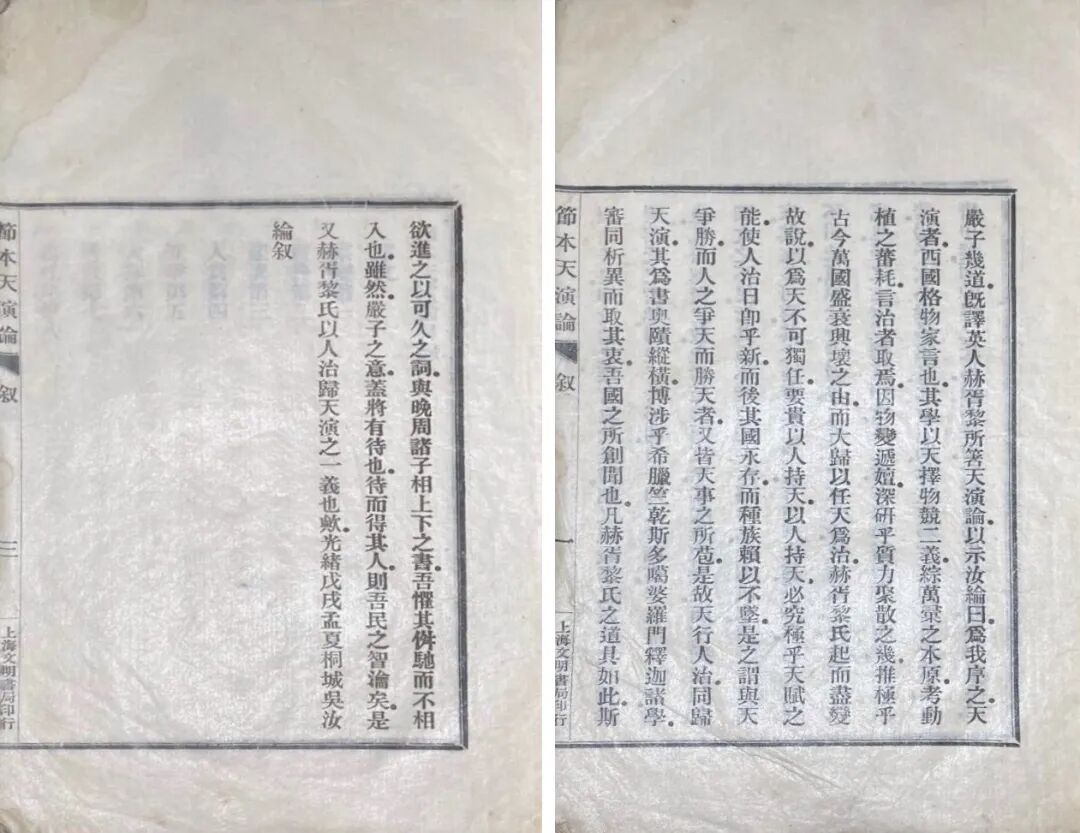 嚴子幾道。既譯英人赫胥黎所箸天演論。以示汝綸曰。爲我序之。天
演者。西國格物家言也。其學以天擇物競二義。綜萬彙之本原。考動
植之蕃耗。言治者取焉。因物變遞嬗。深研乎質力聚散之幾。推極乎
古今萬國盛衰興壞之由。而大歸以任天爲治。赫胥黎氏起而盡變
故說。以爲天不可獨任。要貴以人持天。以人持天。必究極乎天賦之
能。使人治日卽乎新。而後其國永存。而種族賴以不墜。是之謂與天
爭勝。而人之爭天而勝天者。又皆天事之所苞。是故天行人治。同歸
天演。其爲書奧賾縱橫。博涉乎希臘竺乾斯多噶婆羅門釋迦諸學。
審同析異而取其衷。吾國之所創聞也。凡赫胥黎氏之道具如此。斯
節本天演論
叙
一
上海文明書局印行
欲進之以可久之詞。與晚周諸子相上下之書。吾懼其併馳而不相
入也。雖然。嚴子之意。蓋將有待也。待而得其人。則吾民之智瀹矣。是
又赫胥黎氏以人治歸天演之一義也歟。光緒戊戌孟夏桐城吳汝
綸叙
節本天演論
叙
上海文明書局印行